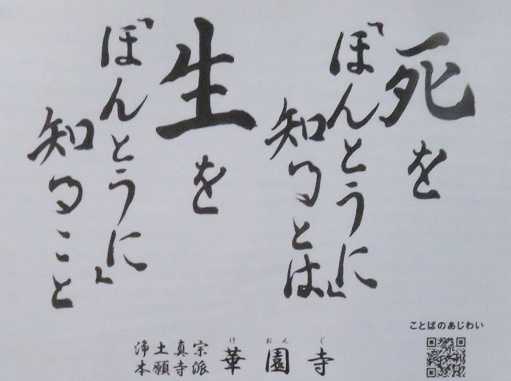 死を
「ほんとうに」
知るとは
生を
「ほんとうに」
知ること
ことばのあじわい
浄土真宗
本願寺派
けおんじ
華園寺